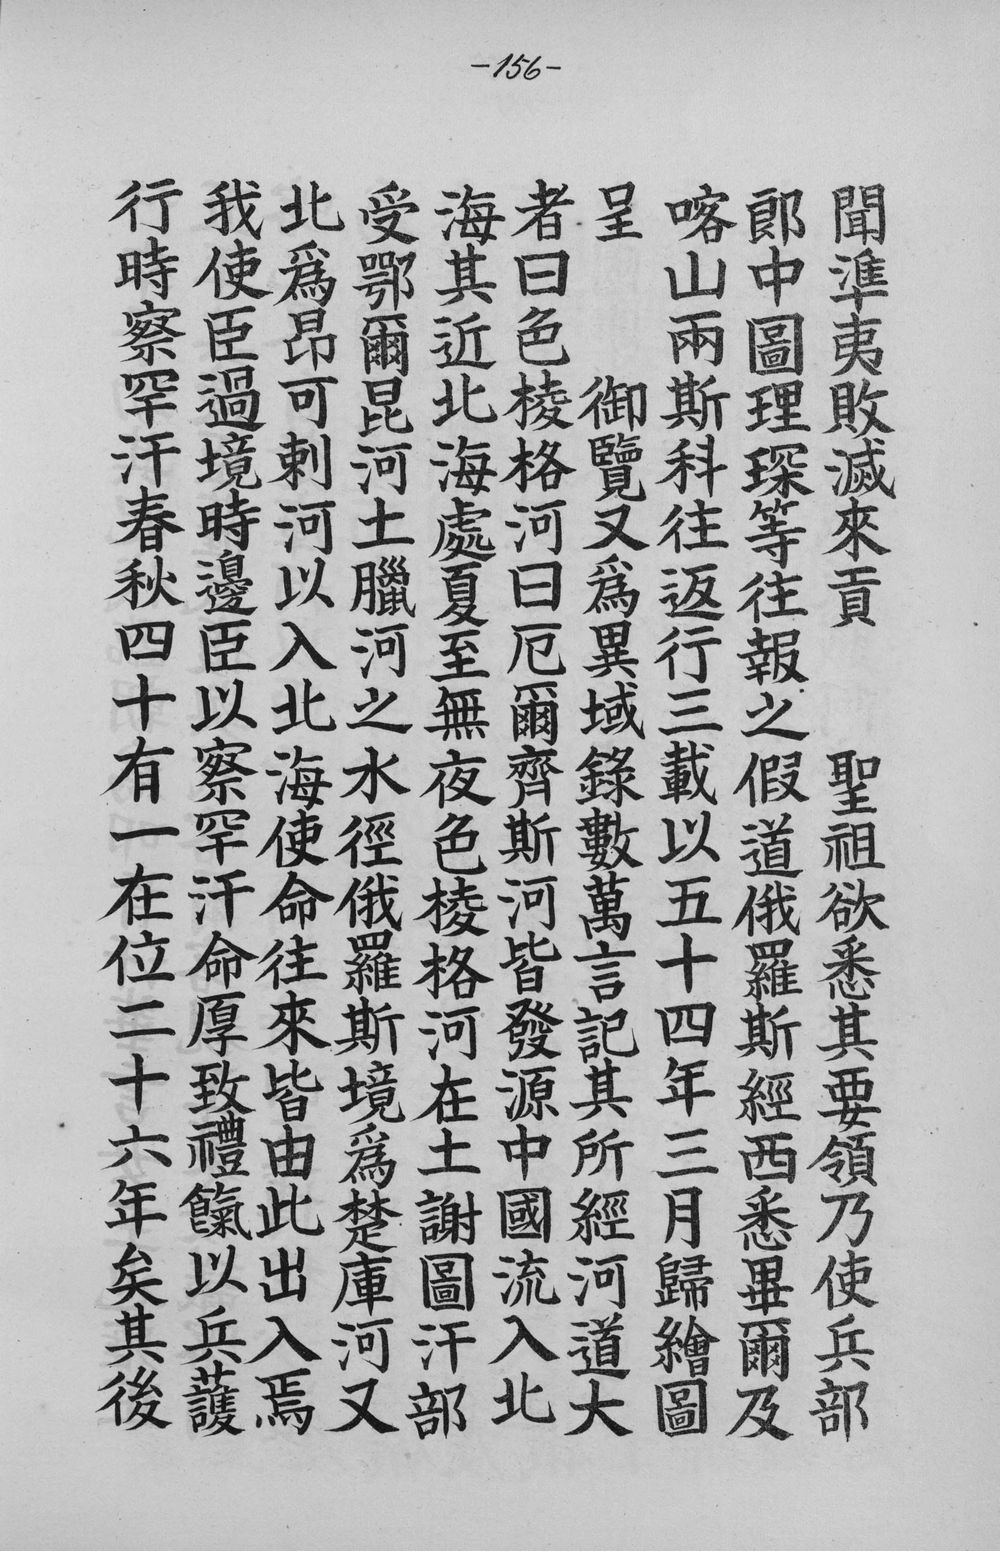 -156-
聞準夷敗滅來貢　聖祖欲悉其要領乃使兵部
郎中圖理琛等往報之假道俄羅斯經西悉畢爾及
喀山兩斯科往返行三載以五十四年三月歸繪圖
呈　御覽又爲異域錄數萬言記其所經河道大
者曰色棱格河曰厄爾齊斯河皆發源中國流入北
海其近北海處夏至無夜色棱格河在土謝圖汗部
受鄂爾昆河土臘河之水徑俄羅斯境爲楚庫河又
北爲昂可刺河以入北海使命往來皆由此出入焉
我使臣過境時邊臣以察罕汗命厚致禮餼以兵護
行時察罕汗春秋四十有一在位二十六年矣其後